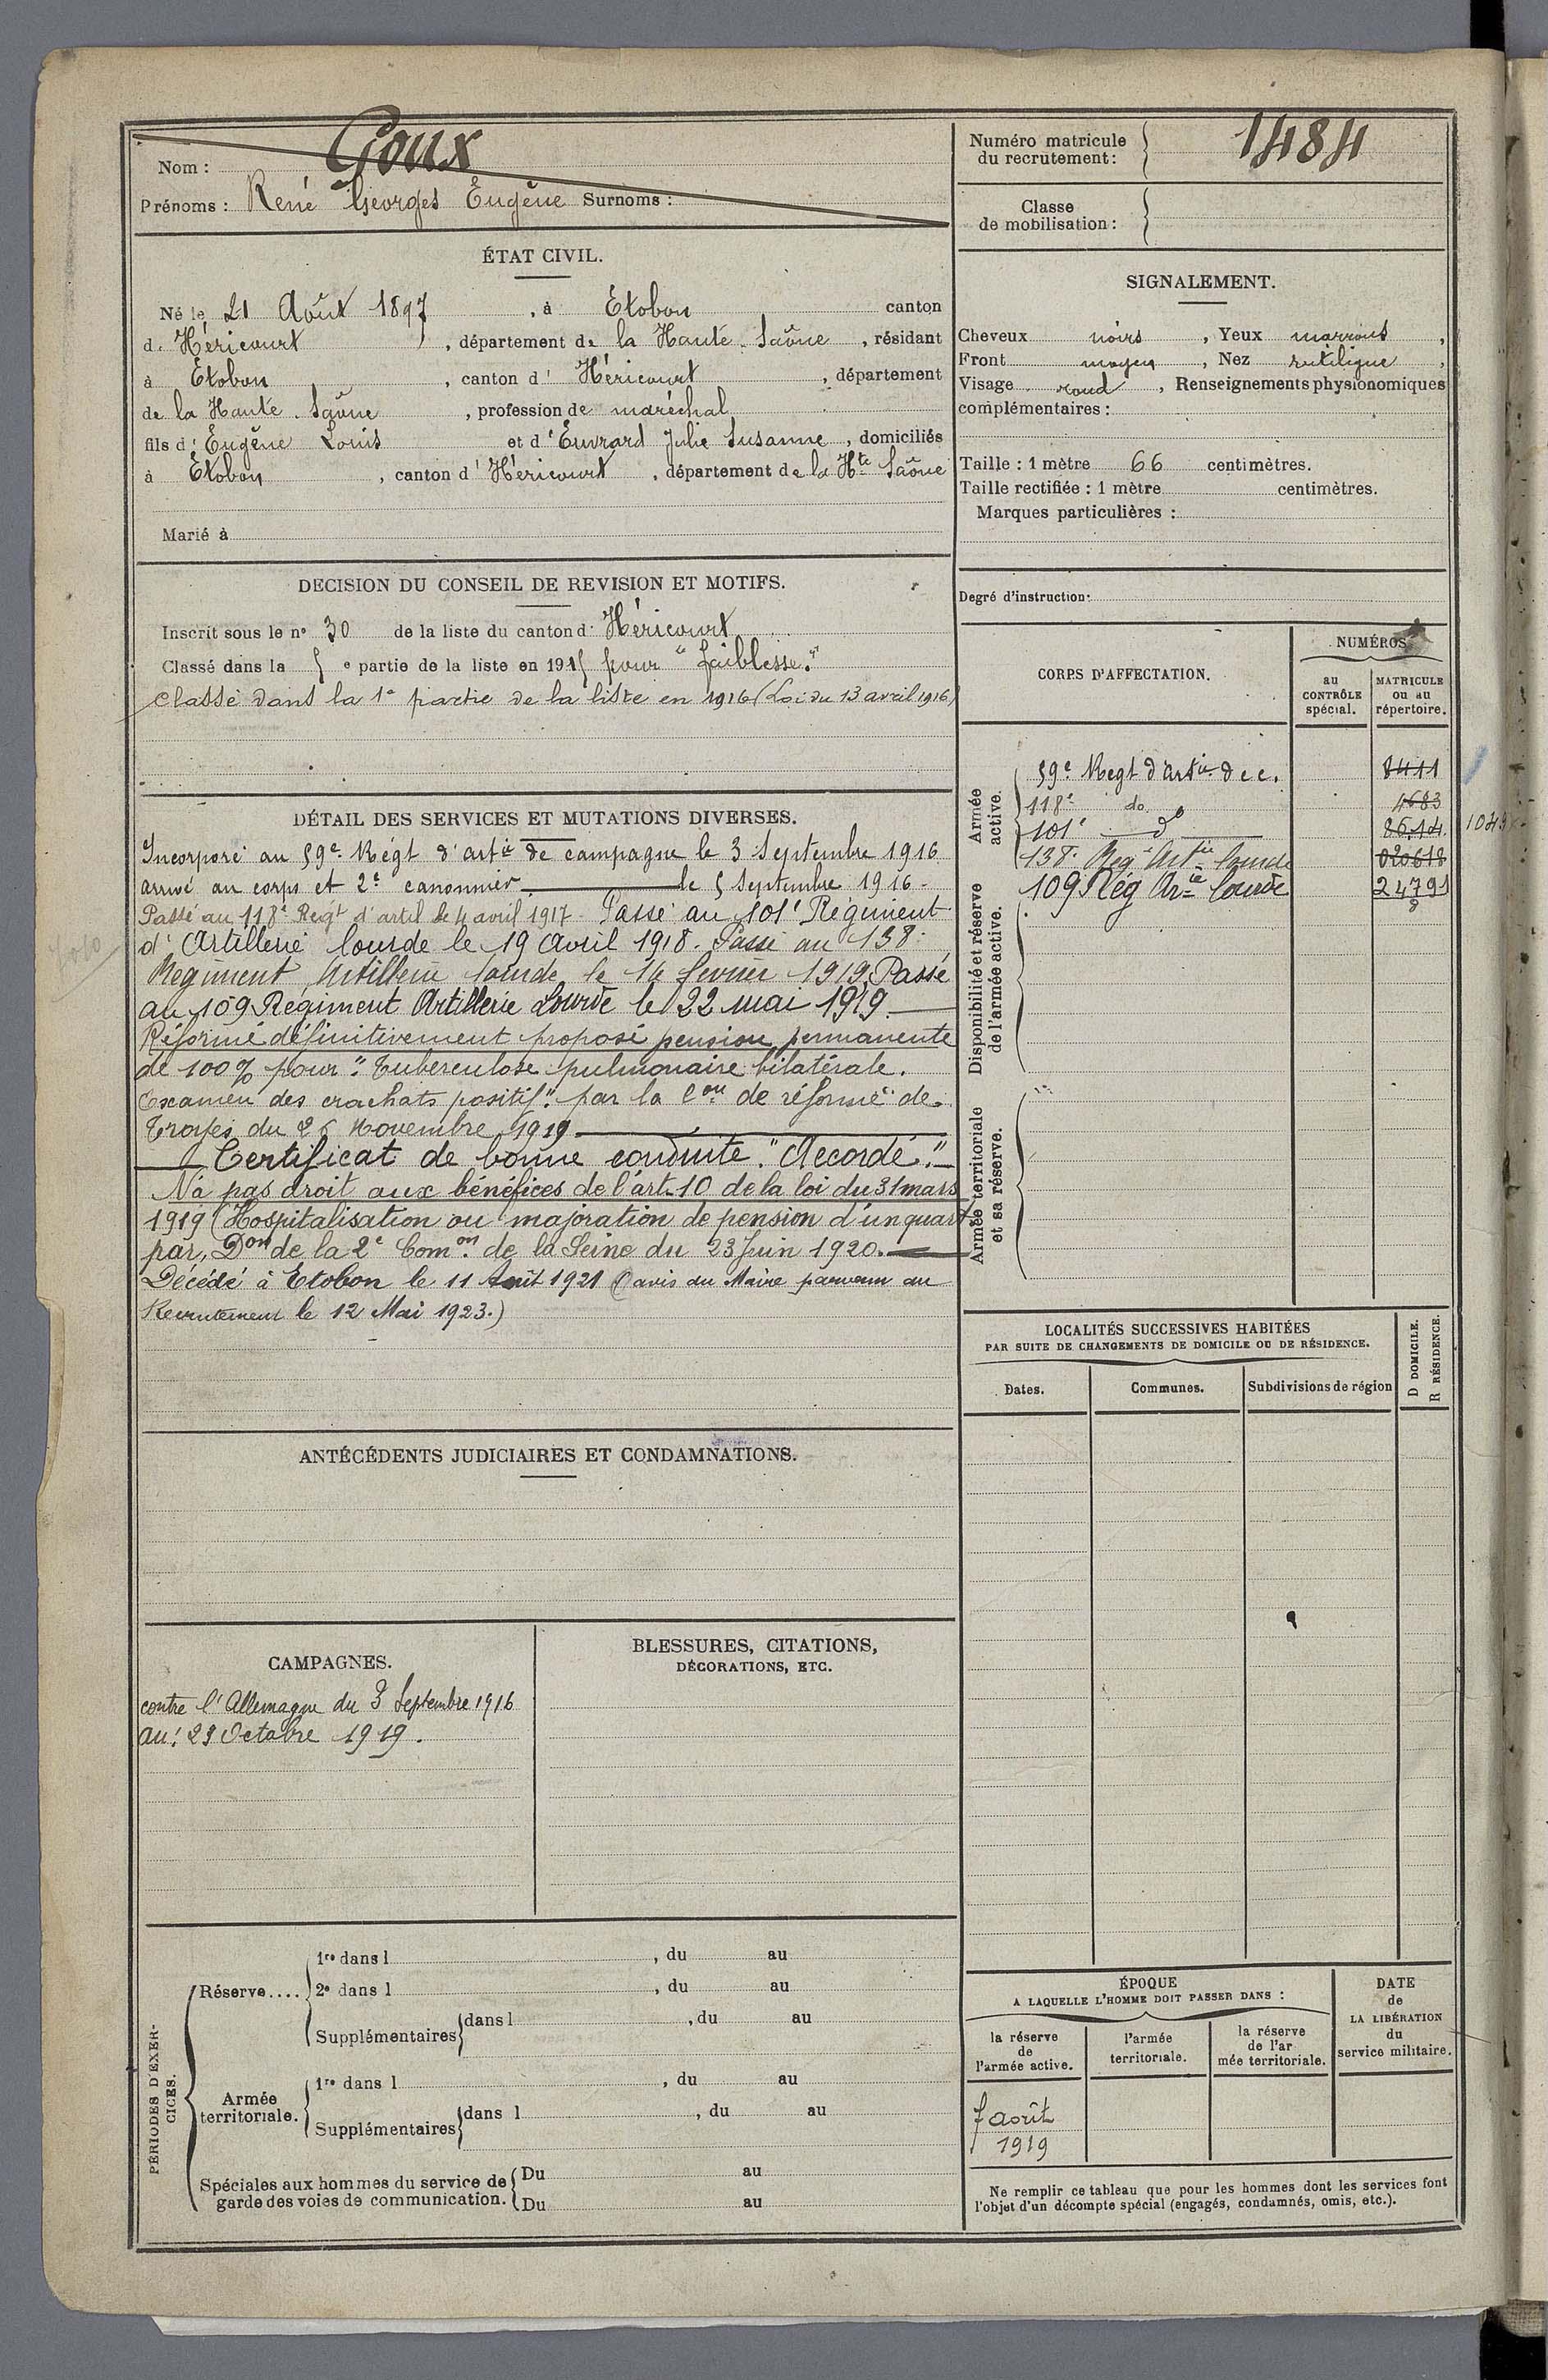 Nom : Goux
Prénoms : René Georges Eugène Surnoms :
Numéro matricule du recrutement : 1484
Classe de mobilisation :
ÉTAT CIVIL.
Né le 21 Août 1897, à Etobon canton
d. Héricourt, département de la Haute-Saône, résidant
à Etobon, canton d' Héricourt, département
de la Haute Saône, profession de maréchal
fils d' Eugène Louis et d' Euvrard Julie Susanne, domiciliés
à Etobon, canton d' Héricourt, département de la Hte Saône
Marié à
SIGNALEMENT.
Cheveux noirs, Yeux marrons,
Front moyen, Nez rectiligne,
Visage rond, Renseignements physionomiques
complémentaires :
Taille : 1 mètre 66 centimètres.
Taille rectifiée : 1 mètre centimètres.
Marques particulières :
Degré d'instruction:
DECISION DU CONSEIL DE REVISION ET MOTIFS.
Inscrit sous le n° 30 de la liste du canton d' Héricourt
Classé dans la 5e partie de la liste en 1915 pour "faiblesse."
Classé dans la 1e partie de la liste en 1916 (Loi du 13 avril 1916)
DÉTAIL DES SERVICES ET MUTATIONS DIVERSES.
Incorporé au 59e Régt d'artie de campagne le 3 Septembre 1916
arrivé au corps et 2e canonnier le 5 Septembre 1916 -
Passé au 118e Régt d'artil le 4 avril 1917 - Passé au 101e Régiment
d'Artillerie lourde le 19 avril 1918. Passé au 138e
Régiment Artillerie lourde le 14 fevrier 1919. Passé
au 109 Régiment Artillerie Lourde le 22 mai 1919
Réformé définitivement proposé pension permanente
de 100% pour "Tuberculose pulmonaire bilatérale.
Examen des crachats positif." par la Con de réforme de
Troyes du 26 Novembre 1919
Certificat de bonne conduite. "Accordé."
N'a pas droit aux bénéfices de l'art-10 de la loi du 31 mars
1919 (Hospitalisation ou majoration de pension d'un quart
par Don de la 2e Comon de la Seine du 23 Juin 1920.
Décédé à Etobon le 11 Août 1921 (avis du Maire parvenu au
Recrutement le 12 Mai 1923.)
CORPS D'AFFECTATION.
NUMÉROS
au CONTRÔLE spécial.
MATRICULE ou au répertoire.
Armée active.
59e Regt d'artie de c. 8411
118e do 4683
101e do 8614 1043
138e Reg Artie lourde 020618
109 Rég Arie lourde 24791
Disponibilité et réserve de l'armée active.
Armée territoriale et sa réserve.
LOCALITÉS SUCCESSIVES HABITÉES
PAR SUITE DE CHANGEMENTS DE DOMICILE OU DE RÉSIDENCE.
D DOMICILE.
R RÉSIDENCE.
Dates.
Communes.
Subdivisions de région
ANTÉCÉDENTS JUDICIAIRES ET CONDAMNATIONS.
CAMPAGNES.
contre l'Allemagne du 3 Septembre 1916
au : 29 Octobre 1919.
BLESSURES, CITATIONS,
DÉCORATIONS, ETC.
PÉRIODES D'EXERCICES.
Réserve....
1re dans l , du au
2e dans l , du au
Supplémentaires dans l , du au
Armée territoriale.
1re dans l , du au
Supplémentaires dans l , du au
Spéciales aux hommes du service de garde des voies de communication.
Du au
Du au
ÉPOQUE
A LAQUELLE L'HOMME DOIT PASSER DANS :
la réserve de l'armée active.
l'armée territoriale.
la réserve de l'armée territoriale.
DATE de LA LIBÉRATION du service militaire.
7 août
1919
Ne remplir ce tableau que pour les hommes dont les services font
l'objet d'un décompte spécial (engagés, condamnés, omis, etc.).